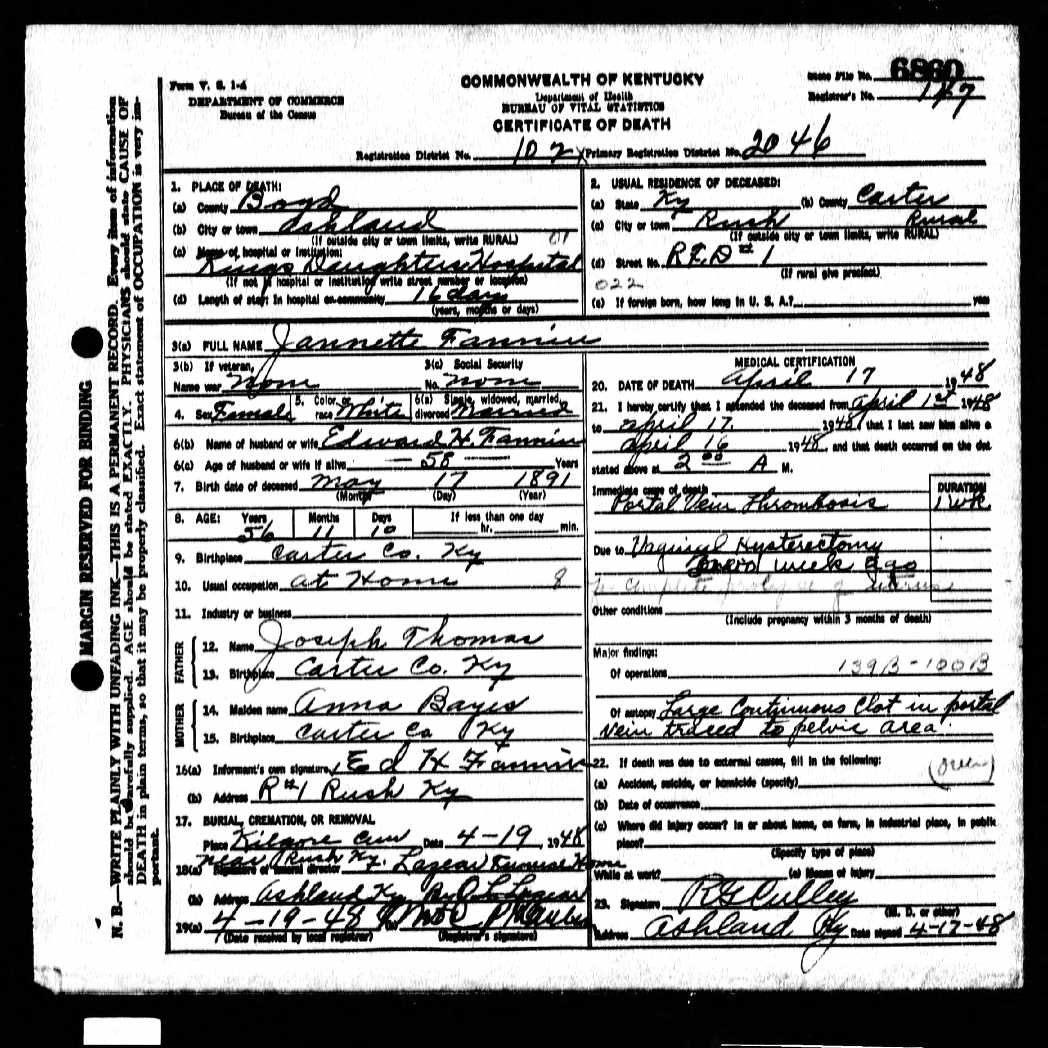 Form V. S. 1-A
DEPARTMENT OF COMMERCE
Bureau of the Census
COMMONWEALTH OF KENTUCKY
Department of Health
BUREAU OF VITAL STATISTICS
CERTIFICATE OF DEATH
State File No. 6860
Registrar's No. 147
Registration District No. 102 Primary Registration District No. 2046
MARGIN RESERVED FOR BINDING
N. B.—WRITE PLAINLY WITH UNFADING INK—THIS IS A PERMANENT RECORD. Every item of information
should be carefully supplied. AGE should be stated EXACTLY. PHYSICIANS should state CAUSE OF
DEATH in plain terms, so that it may be properly classified. Exact statement of OCCUPATION is very im-
portant.
1. PLACE OF DEATH:
(a) County Boyd
(b) City or town Ashland
(If outside city or town limits, write RURAL) 01
(c) Name of hospital or institution:
Kings Daughters Hospital
(If not in hospital or institution write street number or location)
(d) Length of stay: In hospital or community 16 days
(years, months or days)
2. USUAL RESIDENCE OF DECEASED:
(a) State Ky (b) County Carter
(c) City or town Rush Rural
(If outside city or town limits, write RURAL)
(d) Street No. RFD # 1
(If rural give precinct)
022
(e) If foreign born, how long in U. S. A.? years
3(a) FULL NAME Jannette Fannin
3(b) If veteran,
Name war None
3(c) Social Security
No. None
4. Sex Female 5. Color or race White 6(a) Single, widowed, married, divorced Married
6(b) Name of husband or wife Edward H. Fannin
6(c) Age of husband or wife if alive 58 Years
7. Birth date of deceased May 17 1891
(Month) (Day) (Year)
8. AGE: Years Months Days If less than one day
56 11 10 hr. min.
9. Birthplace Carter Co. Ky
10. Usual occupation At Home 8
11. Industry or business
FATHER
12. Name Joseph Thomas
13. Birthplace Carter Co. Ky
MOTHER
14. Maiden name Anna Bayes
15. Birthplace Carter Co Ky
16(a) Informant's own signature Ed H Fannin
(b) Address R#1 Rush Ky
17. BURIAL, CREMATION, OR REMOVAL
Place Kilgore Cem Date 4-19, 1948
near Rush Ky.
18(a) Signature of funeral director Lazear Funeral Home
(b) Address Ashland Ky By
19(a) 4-19-48
(Date received by local registrar) (Registrar's signature)
MEDICAL CERTIFICATION
20. DATE OF DEATH April 17 1948
21. I hereby certify that I attended the deceased from April 1st 1948
to April 17. 1948 that I last saw him alive o
April 16 1948, and that death occurred on the dat
stated above at 2 00 A M.
Immediate cause of death DURATION
Portal Vein Thrombosis 1 wk.
Due to Vaginal Hysterectomy
week ago
complete prolapse of uterus
Other conditions
(Include pregnancy within 3 months of death)
Major findings:
Of operations 139B-100B
Of autopsy Large Continuous Clot in portal
vein traced to pelvic area
22. If death was due to external causes, fill in the following:
(a) Accident, suicide, or homicide (specify)
(b) Date of occurrence
(c) Where did injury occur? In or about home, on farm, in industrial place, in public
place?
(Specify type of place)
While at work? (e) Means of injury
23. Signature
(M. D. or other)
Address Ashland Ky Date signed 4-17-48